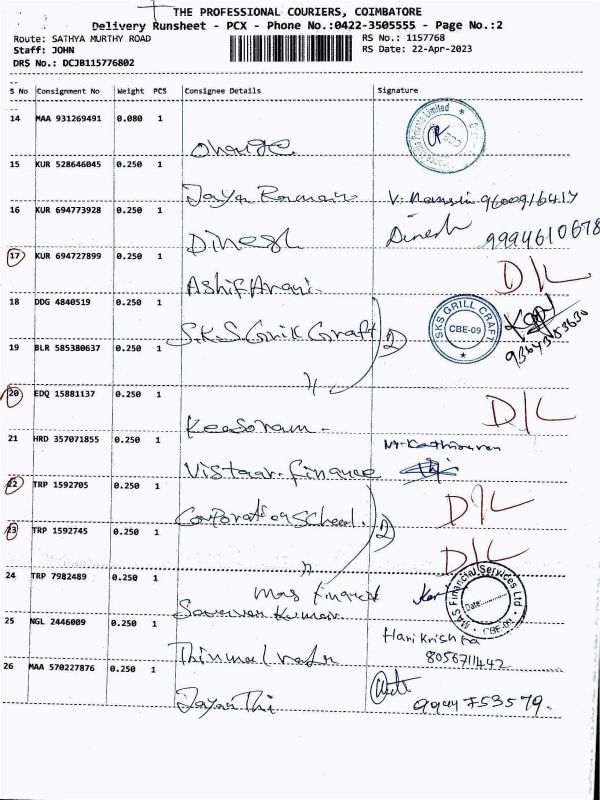 THE PROFESSIONAL COURIERS, COIMBATORE
Delivery Runsheet - PCX - Phone No.:0422-3505555 - Page No.:2
Route: SATHYA MURTHY ROAD RS No.: 1157768
Staff: JOHN RS Date: 22-Apr-2023
DRS No.: DCJB115776802
S No Consignment No Weight PCS Consignee Details Signature
14 MAA 931269491 0.080 1
15 KUR 528646045 0.250 1
Jaya 
16 KUR 694773928 0.250 1
Dinesh Dinesh 9994610678
17 KUR 694727899 0.250 1 D/L
Ashif
18 DDG 4840519 0.250 1
S.K.S Grill Craft 2 SKS GRILL CRAFT CBE-09
19 BLR 585380637 0.250 1
20 EDQ 15881137 0.250 1 D/L
21 HRD 357071855 0.250 1
Vistaar Finance
22 TRP 1592705 0.250 1 D/L
Corporation School. 2
23 TRP 1592745 0.250 1 D/L
24 TRP 7982489 0.250 1
Mas Finance MAS Financial Services Ltd. Date: CBE-09
Saravan Kumar
25 NGL 2446009 0.250 1 Hari Krishna
8056711442
26 MAA 570227876 0.250 1
JayanThi 9944753579.